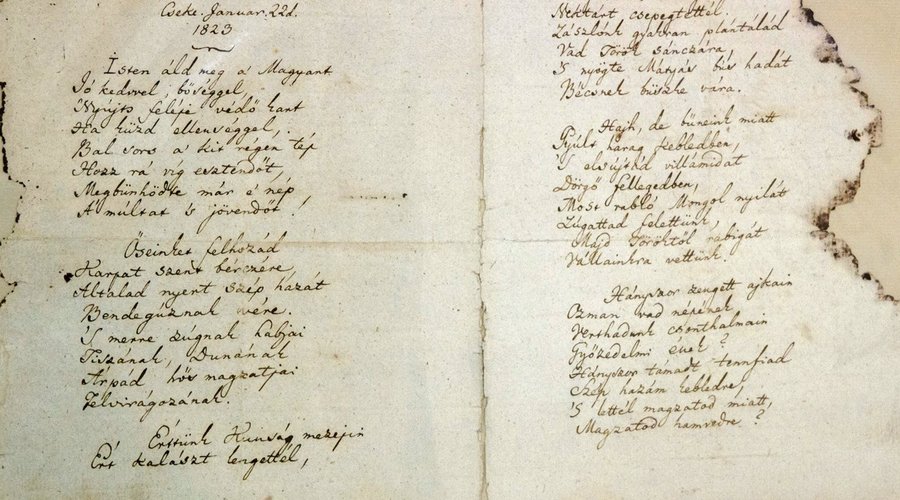 Cseke. Januar. 22d.
1823
Isten áld meg a' Magyart
Jó kedvvel, bőséggel,
Nyújts feléje védő kart
Ha küzd ellenséggel,
Bal sors a' kit régen tép
Hozz rá víg esztendőt,
Megbűnhődte már e' nép
A' múltat 's jövendőt!
Őseinket felhozád
Kárpát szent bérczére,
Általad nyert szép hazát
Bendegúznak vére.
'S merre zúgnak habjai
Tiszának, Dunának
Árpád hős magzatjai
Felvirágozának.
Értünk Kunság mezején
Ért kalászt lengettél,
Nektárt csepegtettél.
Zászlónk gyakran plántálád
Vad Török sánczára,
'S nyögte Mátyás bús hadát
Bécsnek büszke vára.
Hajh, de bűneink miatt
Gyúlt harag kebledben,
'S elsújtád villámidat
Dörgő fellegedben,
Most rabló Mongol nyilát
Zúgattad felettünk,
Majd Töröktől rabigát
Vállainkra vettünk.
Hányszor zengett ajkain
Ozman vad népének
Vert hadunk csonthalmain
Győzedelmi ének?
Hányszor támadt tennfiad
Szép hazám kebledre,
'S lettél magzatod miatt,
Magzatod hamvedre?